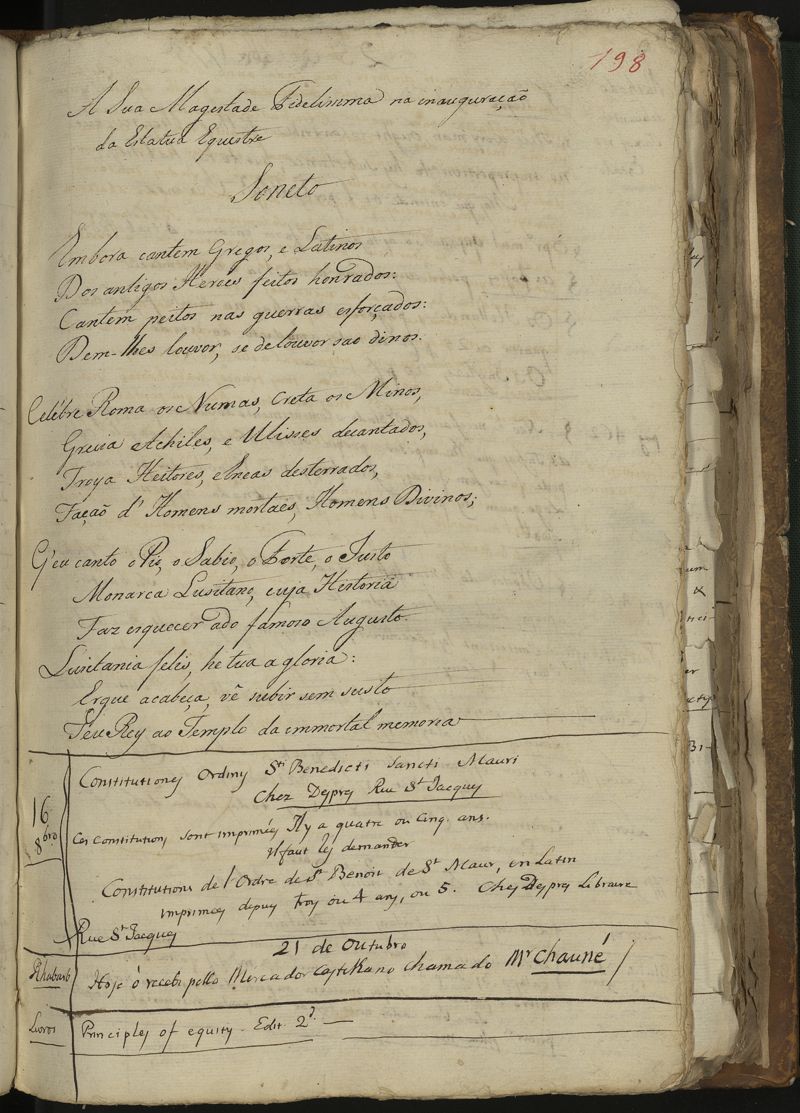 198
A Sua Magestade Fidelissima na inauguração
da Estatua Equestre
Soneto
Embora cantem Gregos, e Latinos
Dos antigos Heroes feitos honrados:
Cantem peitos nas guerras esforçados:
Dem-lhes louvor, se de louvor sao dinos.
Celébre Roma os Numas, Creta os Minos,
Grecia Achiles, e Ulisses decantados,
Troya Heitores, e Eneas desterrados,
Fação d'Homens mortaes, Homens Divinos;
Q'eu canto o Pio, o Sabio, o Forte, o Justo
Monarca Lusitano, cuja Historia
Faz esquecer a do famoso Augusto.
Lusitania felis, he tua a gloria:
Ergue a cabeça, vê subir sem susto
Seu Rey ao Templo da immortal memoria
16 8bro
Constitutiones Ordinis Sti Benedicti Sancti Mauri
Chez Desprez Rue St Jacques
Ces Constitutions sont imprimées Il y a quatre ou cinq ans.
Il faut les demander
Constitutions de l'Ordre de St Benoit de St Maur, en Latin
imprimées depuis troys ou 4 ans, ou 5. Chez Desprez Libraire
Rue St Jacques
21 de Outubro
Rhubarb Hoje o recebi pello Mercador Castelhano chamado Mr Chauné
Livros Principles of equity - Edit. 2d. —